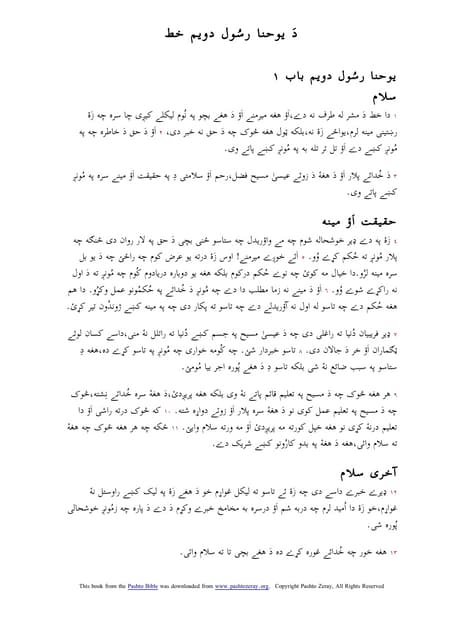 دَ يوحنا رسُول دويم خط
يوحنا رسُول دويم باب ۱
سلام
۱ دا خط دَ مشر له طرف نه دے،اَؤ هغه ميرمنے اَؤ دَ هغے بچو په نُوم ليکلے کيږى چا سره چه زۀ
رښتينى مينه لرم،يواځے زۀ نه،بلکه ټول هغه څوک چه دَ حق نه خبر دى، ۲ اَؤ دَ حق دَ خاطره چه په
مُونږ کښے دے اَؤ تل تر تله به په مُونږ کښے پاتے وى.
۳ دَ خُدائے پلار اَؤ دَ هغۀ دَ زوئے عيسىٰ مسيح فضل،رحم اَؤ سلامتى دِ په حقيقت اَؤ مينے سره په مُونږ
کښے پاتے وى.
حقيقت اَؤ مينه
۴ زۀ په دے ډير خوشحاله شوم چه مے واؤريدل چه ستاسو ځنى بچى دَ حق په لار روان دى څنګه چه
پلار مُونږ ته حُکم کړے وُو. ۵ اَئے خورے ميرمنے! اوس زۀ درته يو عرض کوم چه راځئ چه دَ يو بل
سره مينه لرُو.دا خيال مه کوئ چه نوے حُکم درکوم بلکه هغه يو دوباره دريادوم کُوم چه مُونږ ته دَ اول
نه راکړے شوے وُو. ۶ اَؤ دَ مينے نه زما مطلب دا دے چه مُونږ دَ خُدائے په حُکمُونو عمل وکړُو. دا هم
هغه حُکم دے چه تاسو له اول نه اَؤريدلے دے چه تاسو ته پکار دى چه په مينه کښے ژوندُون تير کړئ.
۷ ډير فريبيان دُنيا ته راغلى دى چه دَ عيسىٰ مسيح په جسم کښے دُنيا ته راتلل نۀ منى،داسے کسان لوئے
ټګماران اَؤ خر دَ جالان دى. ۸ تاسو خبردار شئ. چه کُومه خوارى چه مُونږ په تاسو کړے ده،هغه دِ
ستاسو په سبب ضائع نۀ شى بلکه تاسو دِ دَ هغے پُوره اجر بيا مُومئ.
۹ هر هغه څوک چه دَ مسيح په تعليم قائم پاتے نۀ وى بلکه هغه پريږدئ،دَ هغۀ سره خُدائے نِشته،څوک
چه دَ مسيح په تعليم عمل کوى نو دَ هغۀ سره پلار اَؤ زوئے دواړه شته. ۱۰ که څوک درته راشى اَؤ دا
تعليم درنۀ کړى نو هغه خپل کورته مه پريږدئ اَؤ مه ورته سلام وايئ. ۱۱ ځکه چه هر هغه څوک چه هغۀ
ته سلام وائى،هغه دَ هغۀ په بدو کارُونو کښے شريک دے.
آخرى سلام
۱۲ ډيرے خبرے داسے دى چه زۀ ئے تاسو ته ليکل غواړم خو دَ هغے زۀ په ليک کښے راوستل نۀ
غواړم،خو زۀ دا اُميد لرم چه دربه شم اَؤ درسره به مخامخ خبرے وکړم دَ دے دَ پاره چه زمُونږ خوشحالى
پُوره شى.
۱۳ هغه خور چه خُدائے غوره کړے ده دَ هغے بچى تا ته سلام وائى.
This book from the Pashto Bible was downloaded from www.pashtozeray.org. Copyright Pashto Zeray, All Rights Reserved